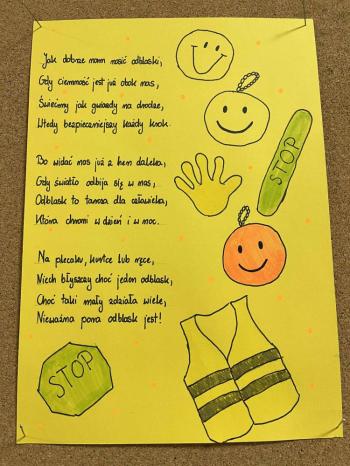 Jak dobrze nam nosić odblaski,
Gdy ciemność jest już obok nas,
Świecimy jak gwiazdy na drodze,
Wtedy bezpieczniejszy każdy krok.
Bo widać nas już z hen daleka,
Gdy światło odbija się w nas,
Odblask to tarcza dla człowieka,
Która chroni w dzień i w noc.
Na plecaku, kurtce lub ręce,
Niech błyszczy choć jeden odblask,
Choć taki mały zdziała wiele,
Nieważna pora odblask jest!
STOP
STOP